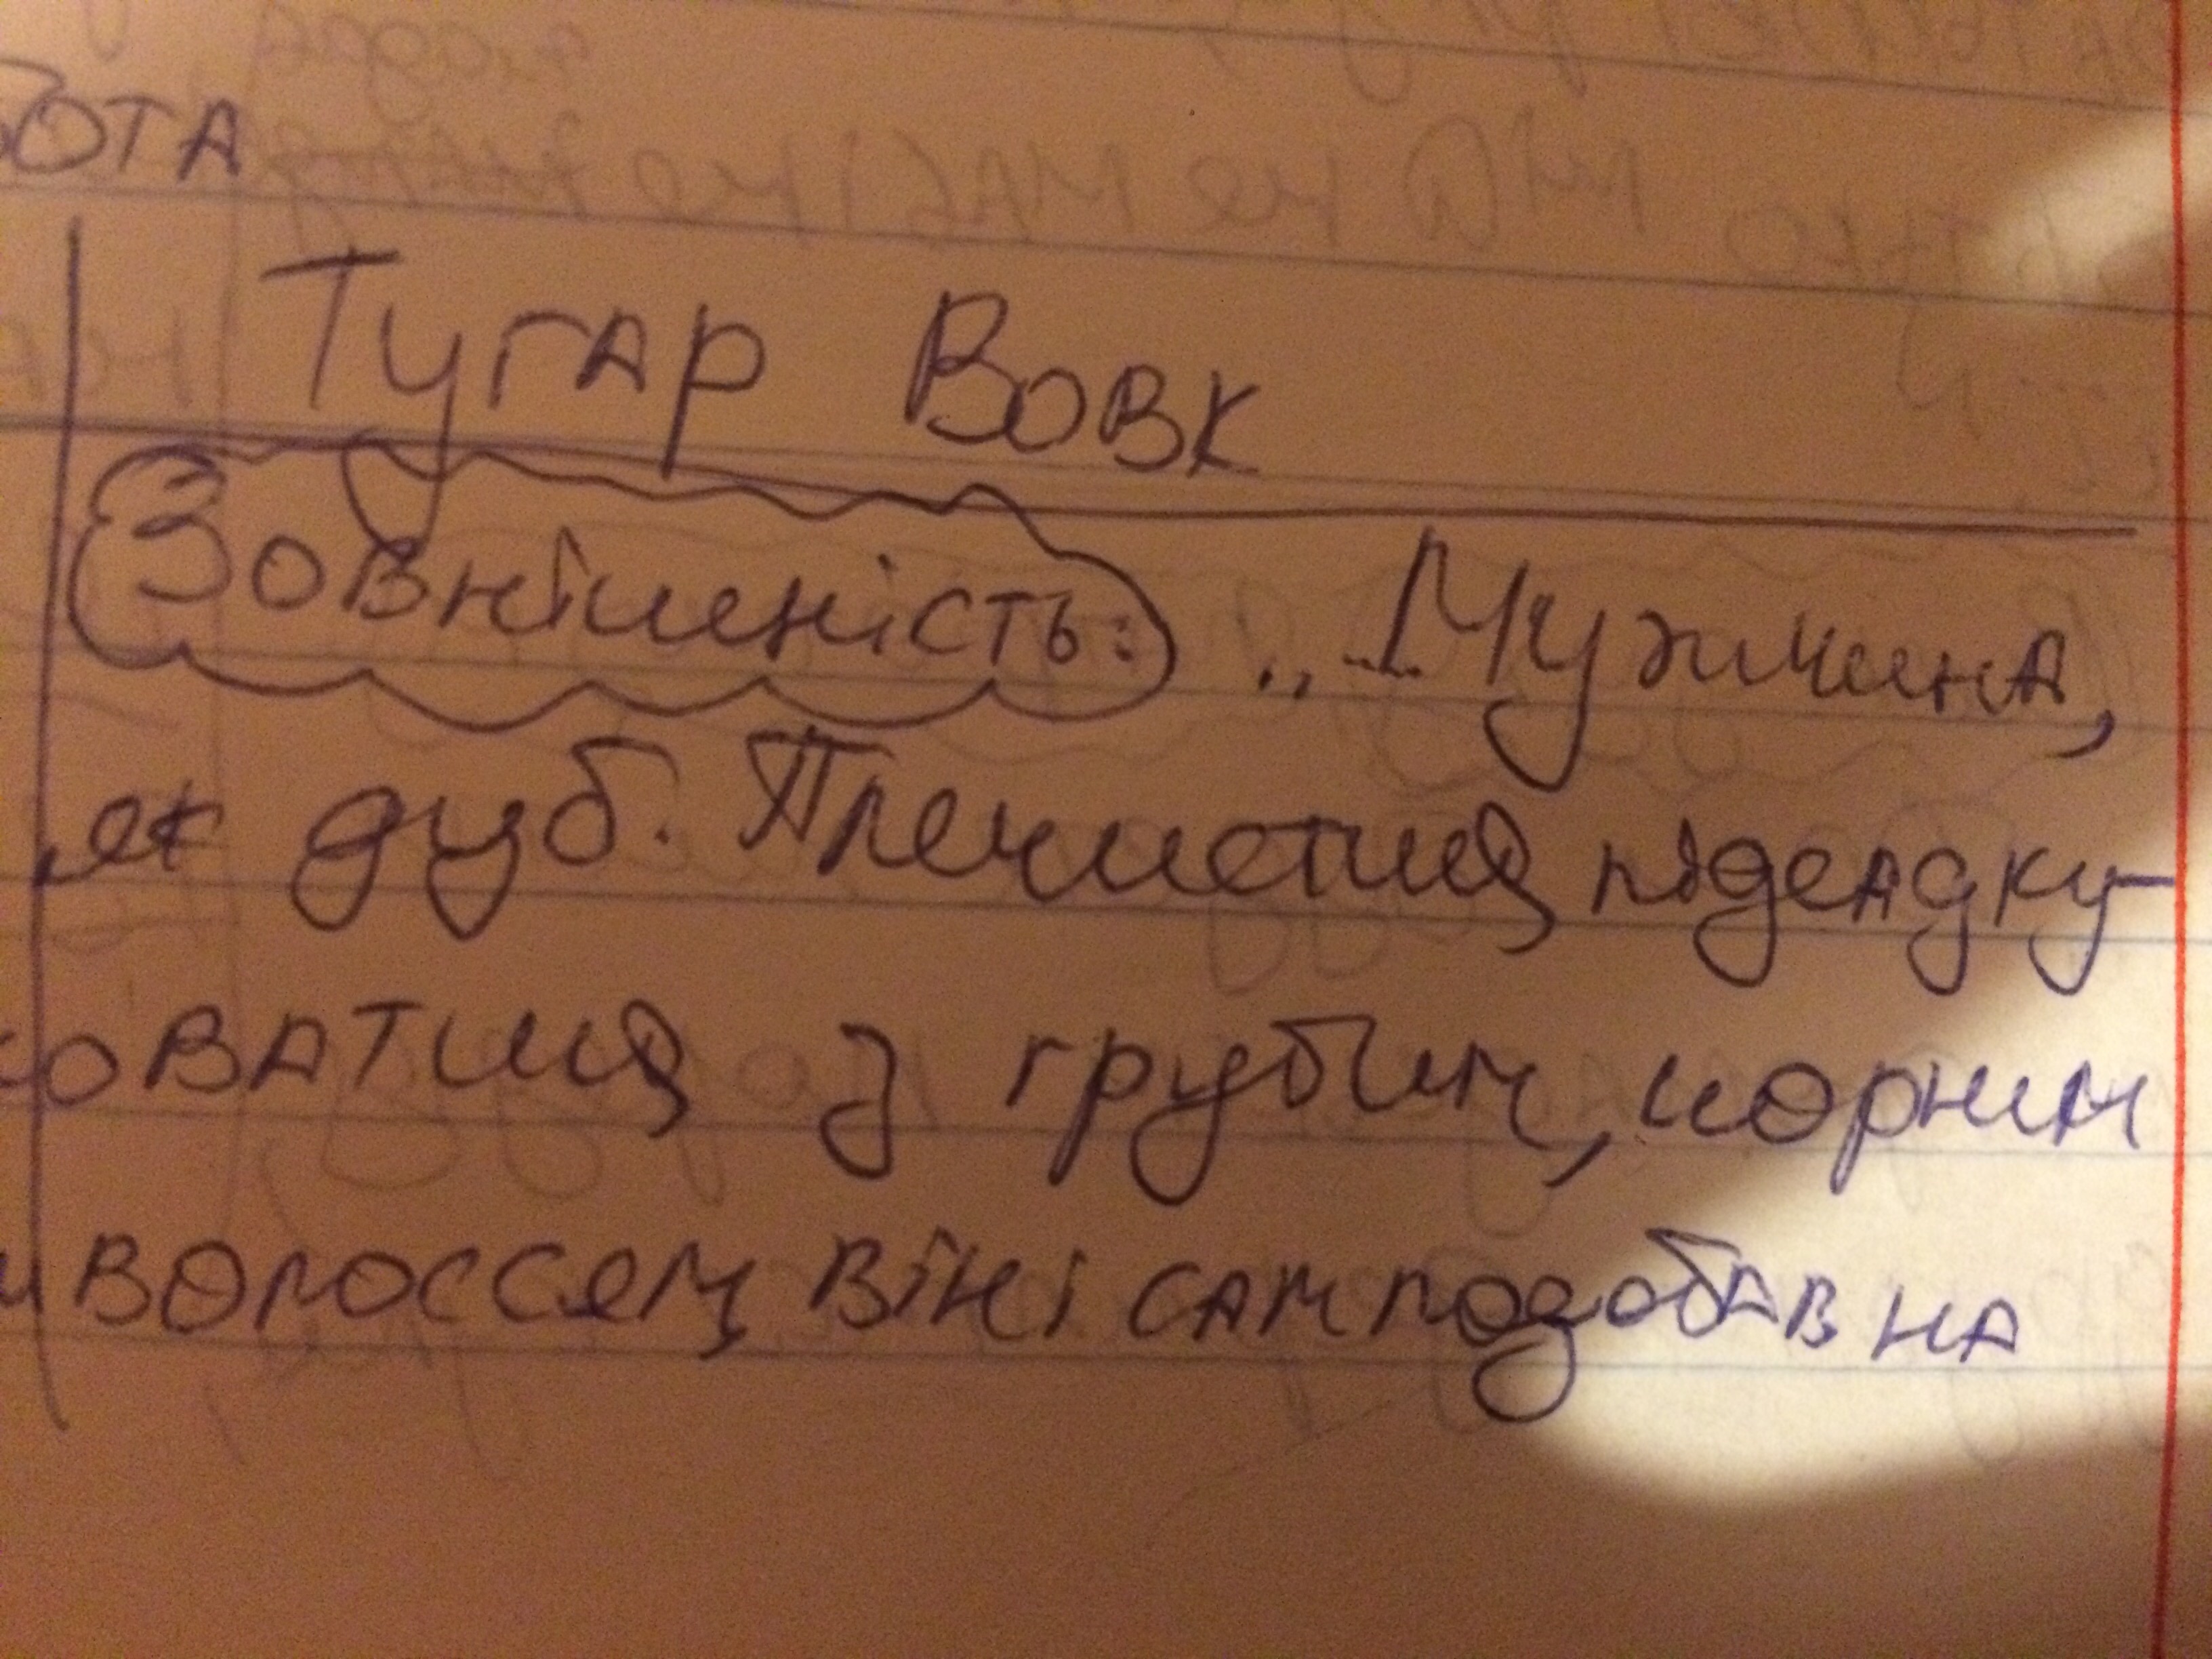 бота
Тугар Вовк
Зовнішність: „...Мужчина,
як дуб. Плечистий, підсадку-
коватий з грубим, чорним
волоссем, він і сам подобав на